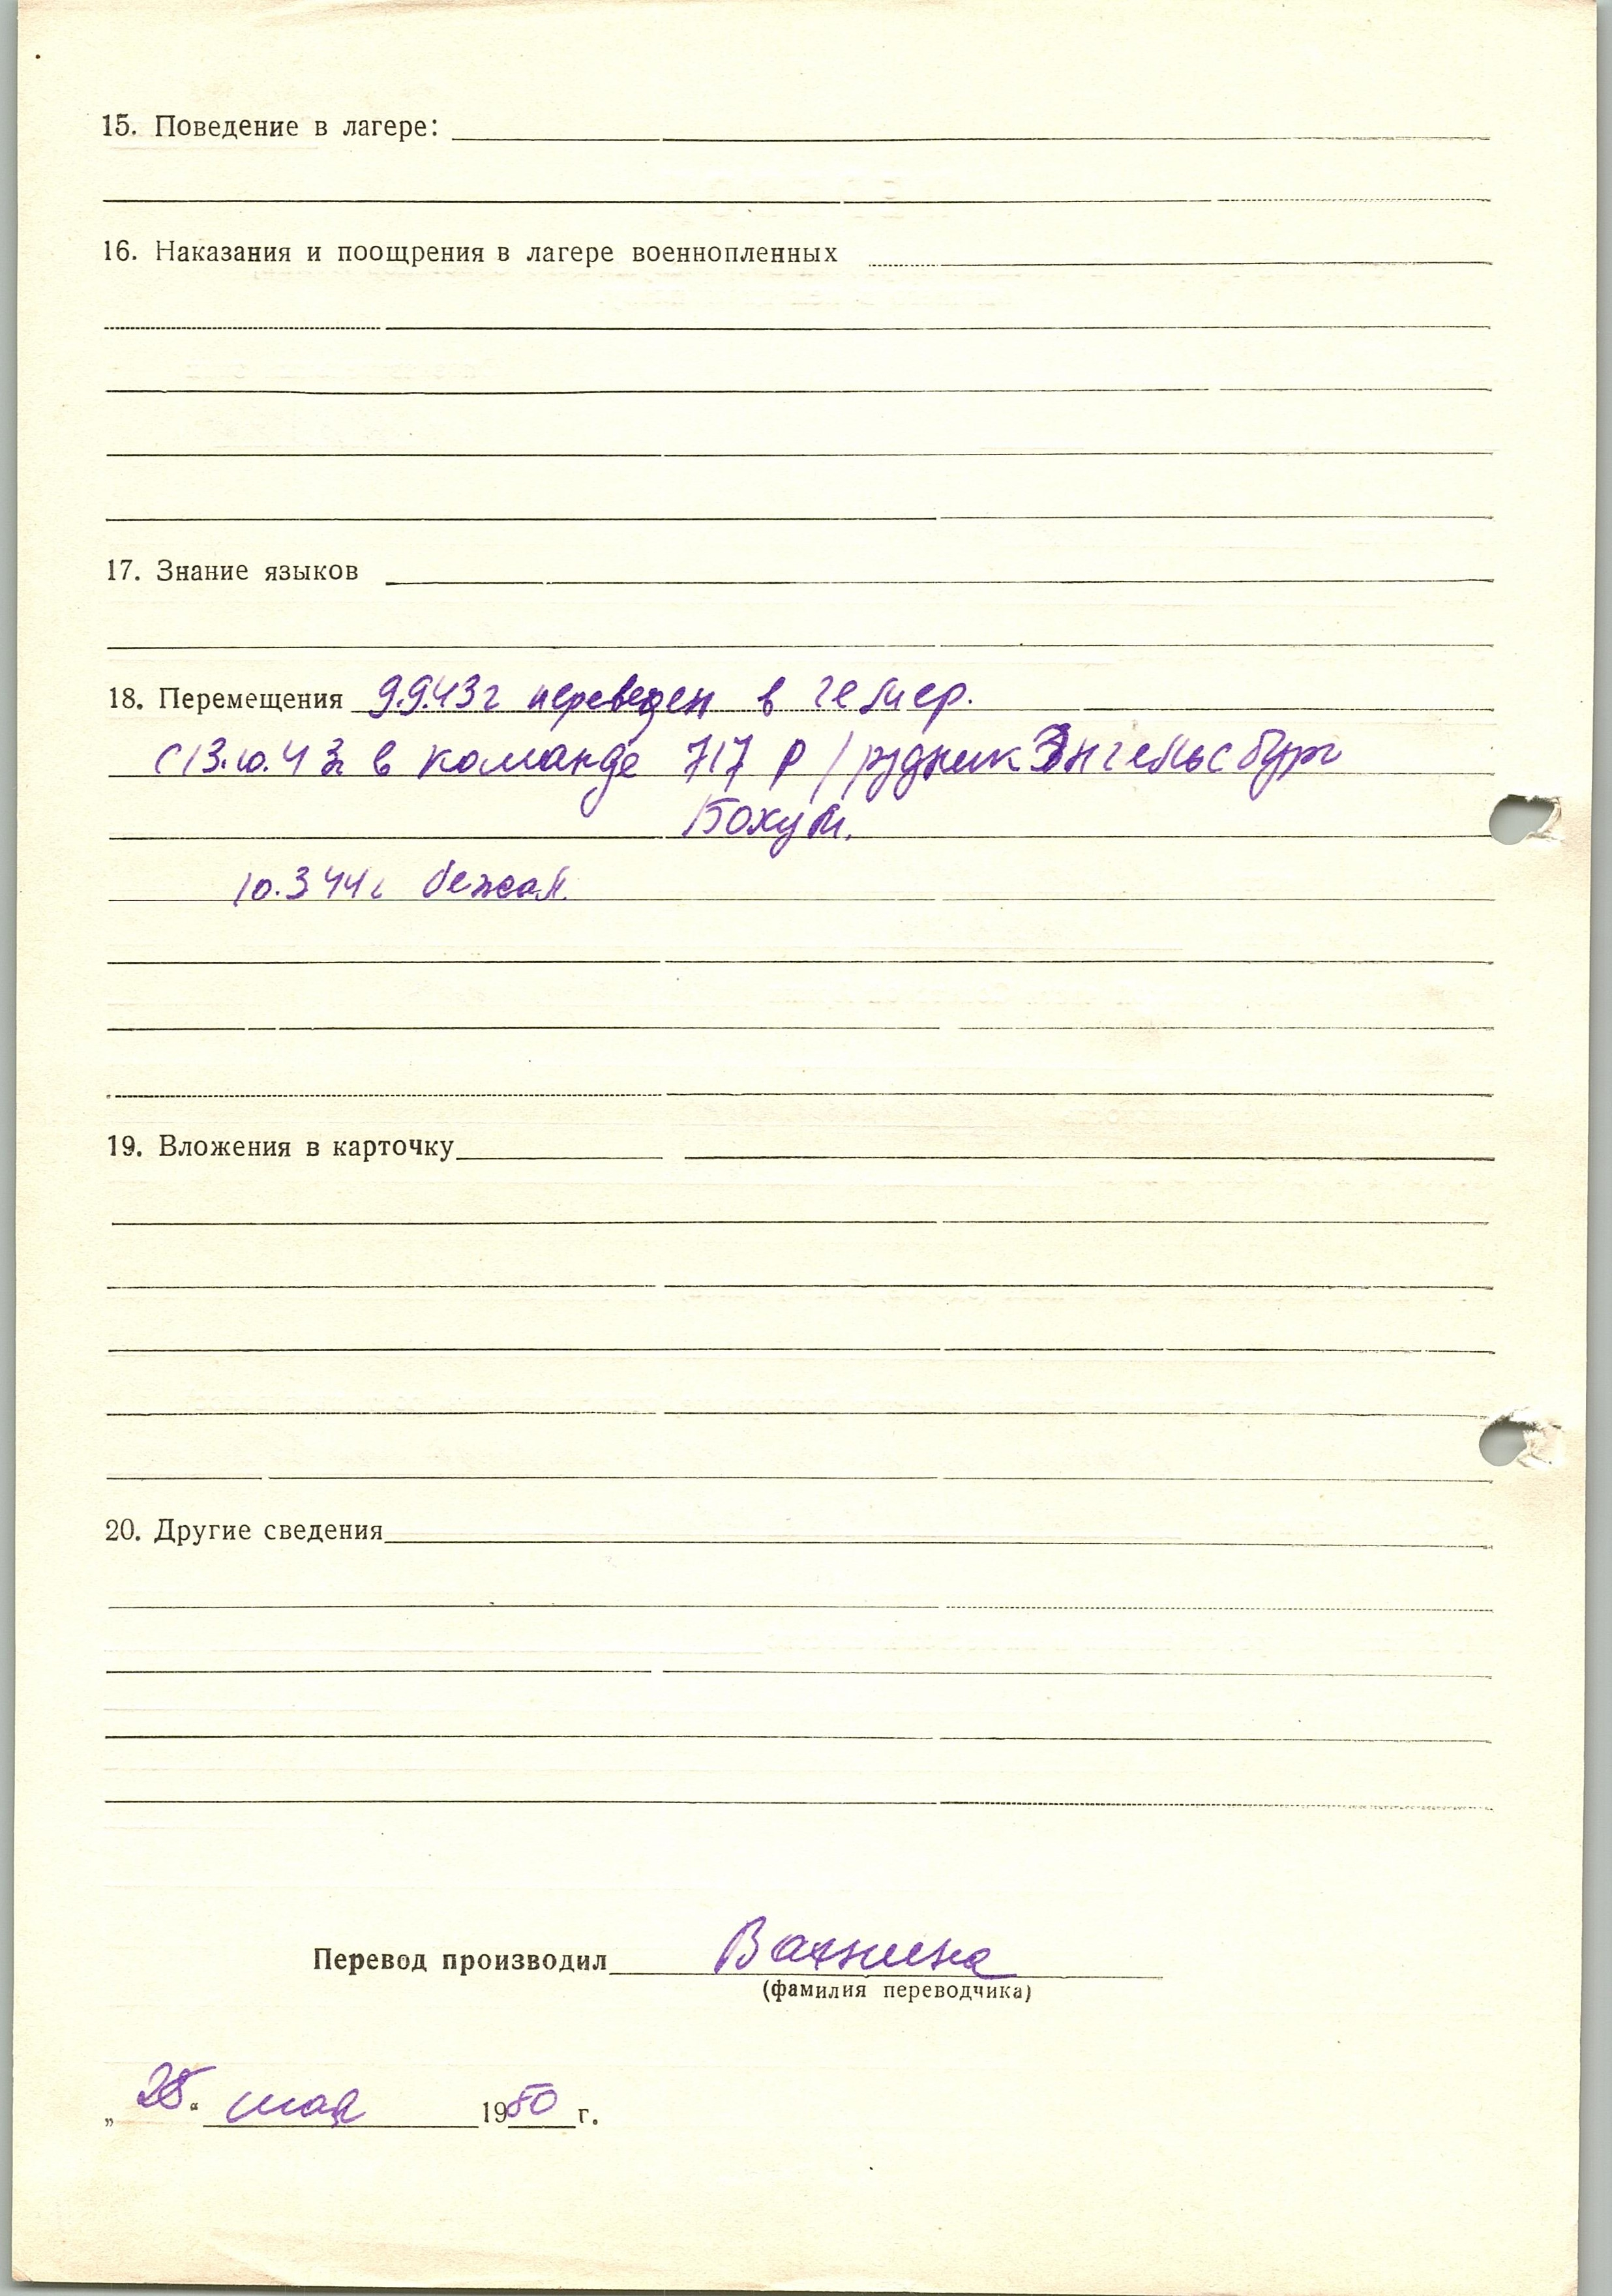 15. Поведение в лагере:
16. Наказания и поощрения в лагере военнопленных
17. Знание языков
18. Перемещения 9.9.43г переведен в гемер.
с 13.10.43г в команде 717 Р / рудник Энгельсбург
Бохум.
10.3 44г бежал.
19. Вложения в карточку
20. Другие сведения
Перевод производил Вахнина
(фамилия переводчика)
„ 25 “ мая 1950 г.